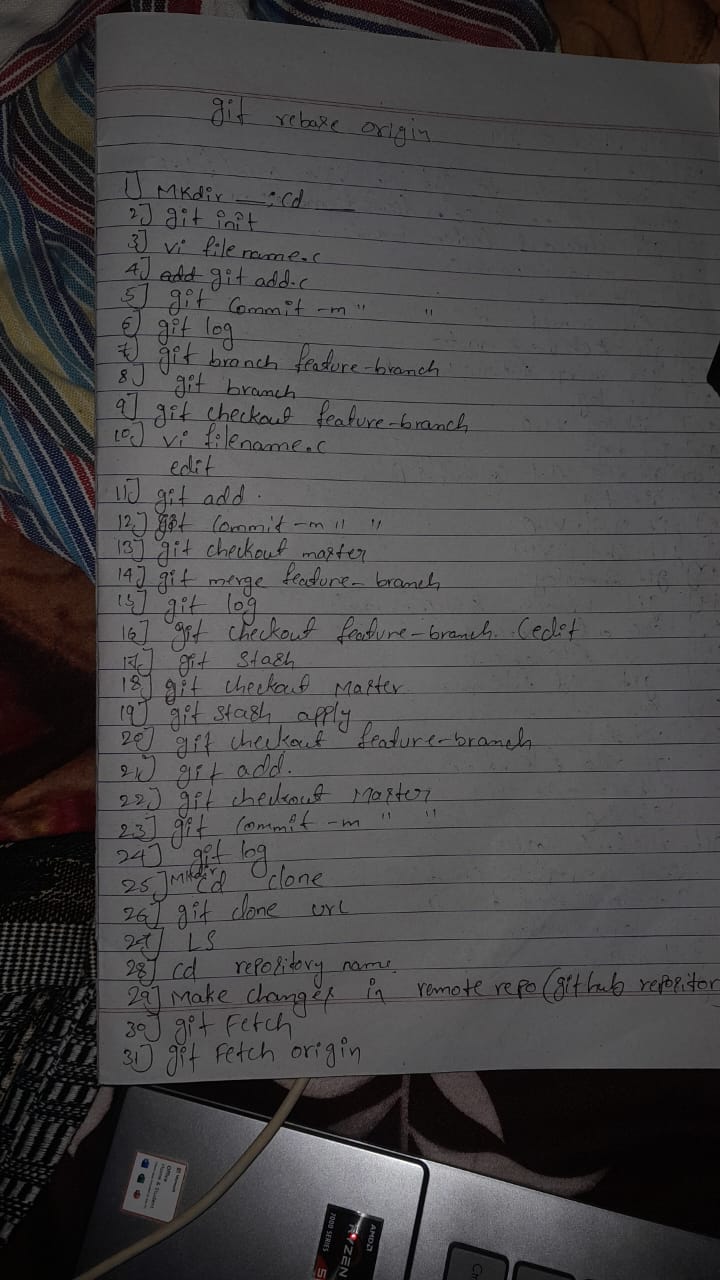 git rebase origin
1] MKdir __ ; cd __
2] git init
3] vi filename.c
4] add git add.c
5] git Commit -m " "
6] git log
7] git branch feature-branch
8] git branch
9] git checkout feature-branch
10] vi filename.c
edit
11] git add .
12] git Commit -m " "
13] git checkout master
14] git merge feature-branch
15] git log
16] git checkout feature-branch. (edit
17] git stash
18] git checkout Master
19] git stash apply
20] git checkout feature-branch
21] git add.
22] git checkout Master
23] git Commit -m " "
24] git log
25] MKdir cd clone
26] git clone url
27] LS
28] cd repository name.
29] Make changes in remote repo (github repositor
30] git Fetch
31] git Fetch origin
Microsoft
Office
Home & Student
AMD
RYZEN
5
7000 SERIES